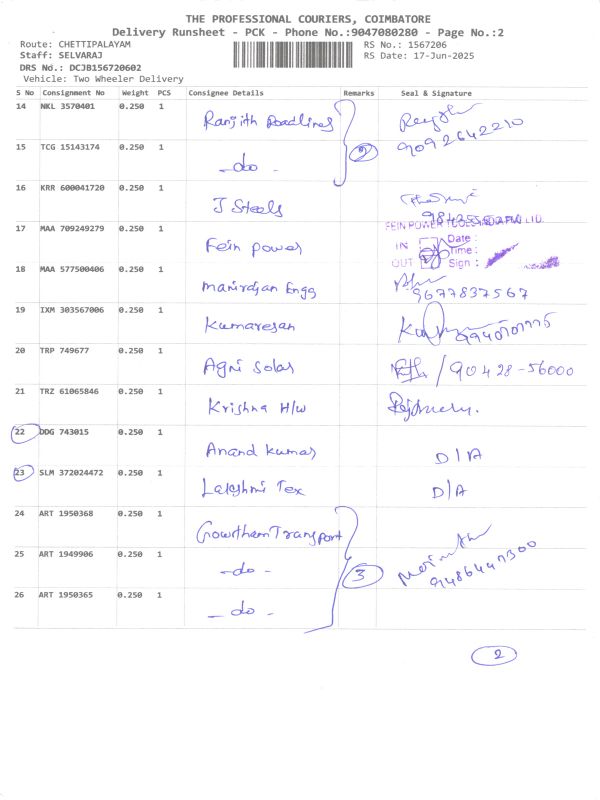 THE PROFESSIONAL COURIERS, COIMBATORE
Delivery Runsheet - PCK - Phone No.:9047080280 - Page No.:2
Route: CHETTIPALAYAM RS No.: 1567206
Staff: SELVARAJ RS Date: 17-Jun-2025
DRS No.: DCJB156720602
Vehicle: Two Wheeler Delivery
S No Consignment No Weight PCS Consignee Details Remarks Seal & Signature
14 NKL 3570401 0.250 1 Ranjith Roadlines
9092642210
15 TCG 15143174 0.250 1 -do- 2
16 KRR 600041720 0.250 1 J Steels
17 MAA 709249279 0.250 1 Fein power
FEIN POWER TOOLS INDIA PVT LTD.
IN Date :
Time :
OUT Sign :
18 MAA 577500406 0.250 1 Manirajan Engg
9677837567
19 IXM 303567006 0.250 1 Kumaresan
20 TRP 749677 0.250 1 Agni Solar / 90428-56000
21 TRZ 61065846 0.250 1 Krishna H/w
22 DDG 743015 0.250 1 Anand Kumar D/A
23 SLM 372024472 0.250 1 Lakshmi Tex D/A
24 ART 1950368 0.250 1 Gowtham Transport
25 ART 1949906 0.250 1 -do- 3
9486447300
26 ART 1950365 0.250 1 -do-
2